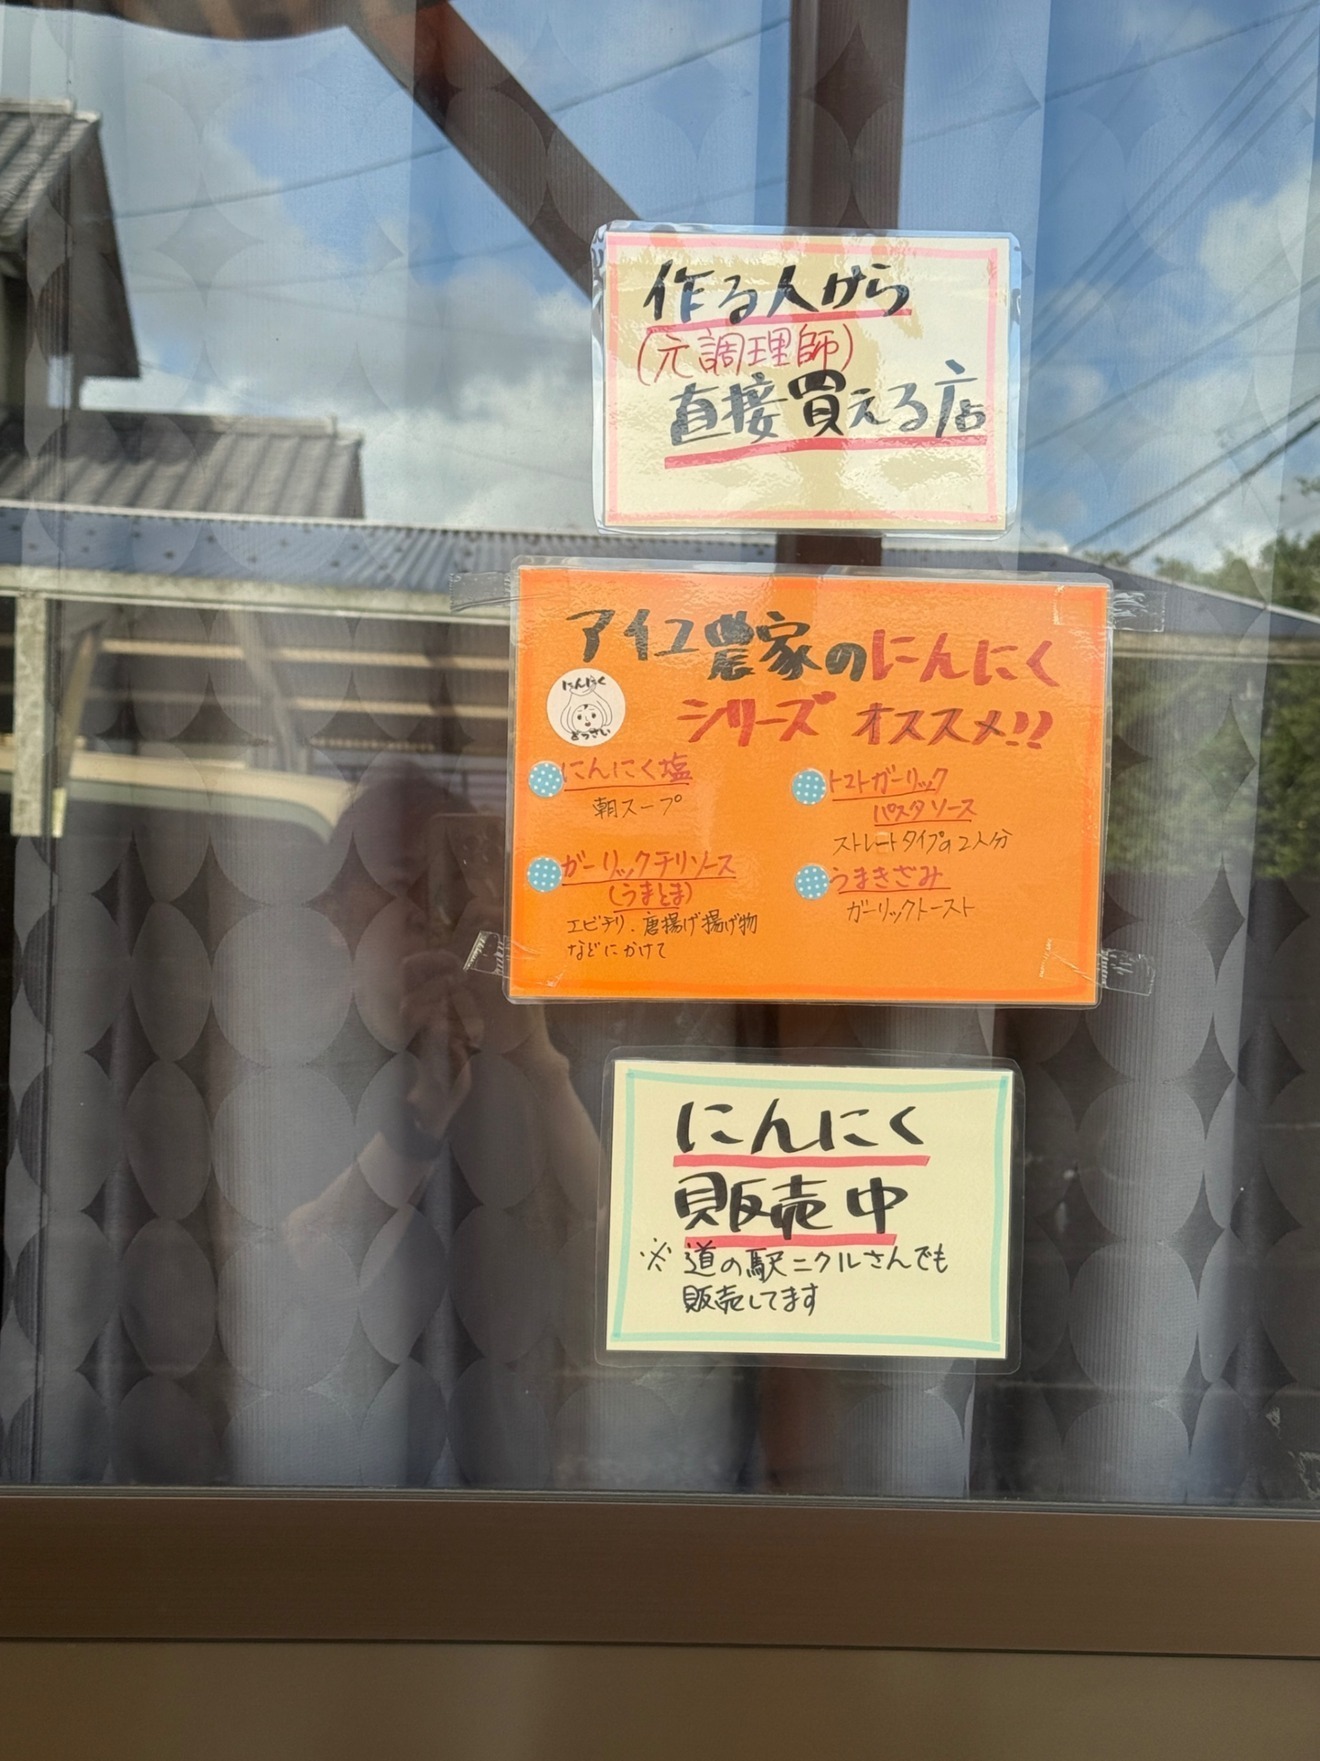 作る人から
(元調理師)
直接買える店
アイユ農家のにんにく
シリーズ オススメ!!
にんにく
どっさい
にんにく塩
朝スープ
ガーリックチリソース
(うまとま)
エビチリ、唐揚げ揚げ物
などにかけて
トマトガーリック
パスタソース
ストレートタイプの2人分
うまきざみ
ガーリックトースト
にんにく
販売中
※道の駅ニクルさんでも
販売してます